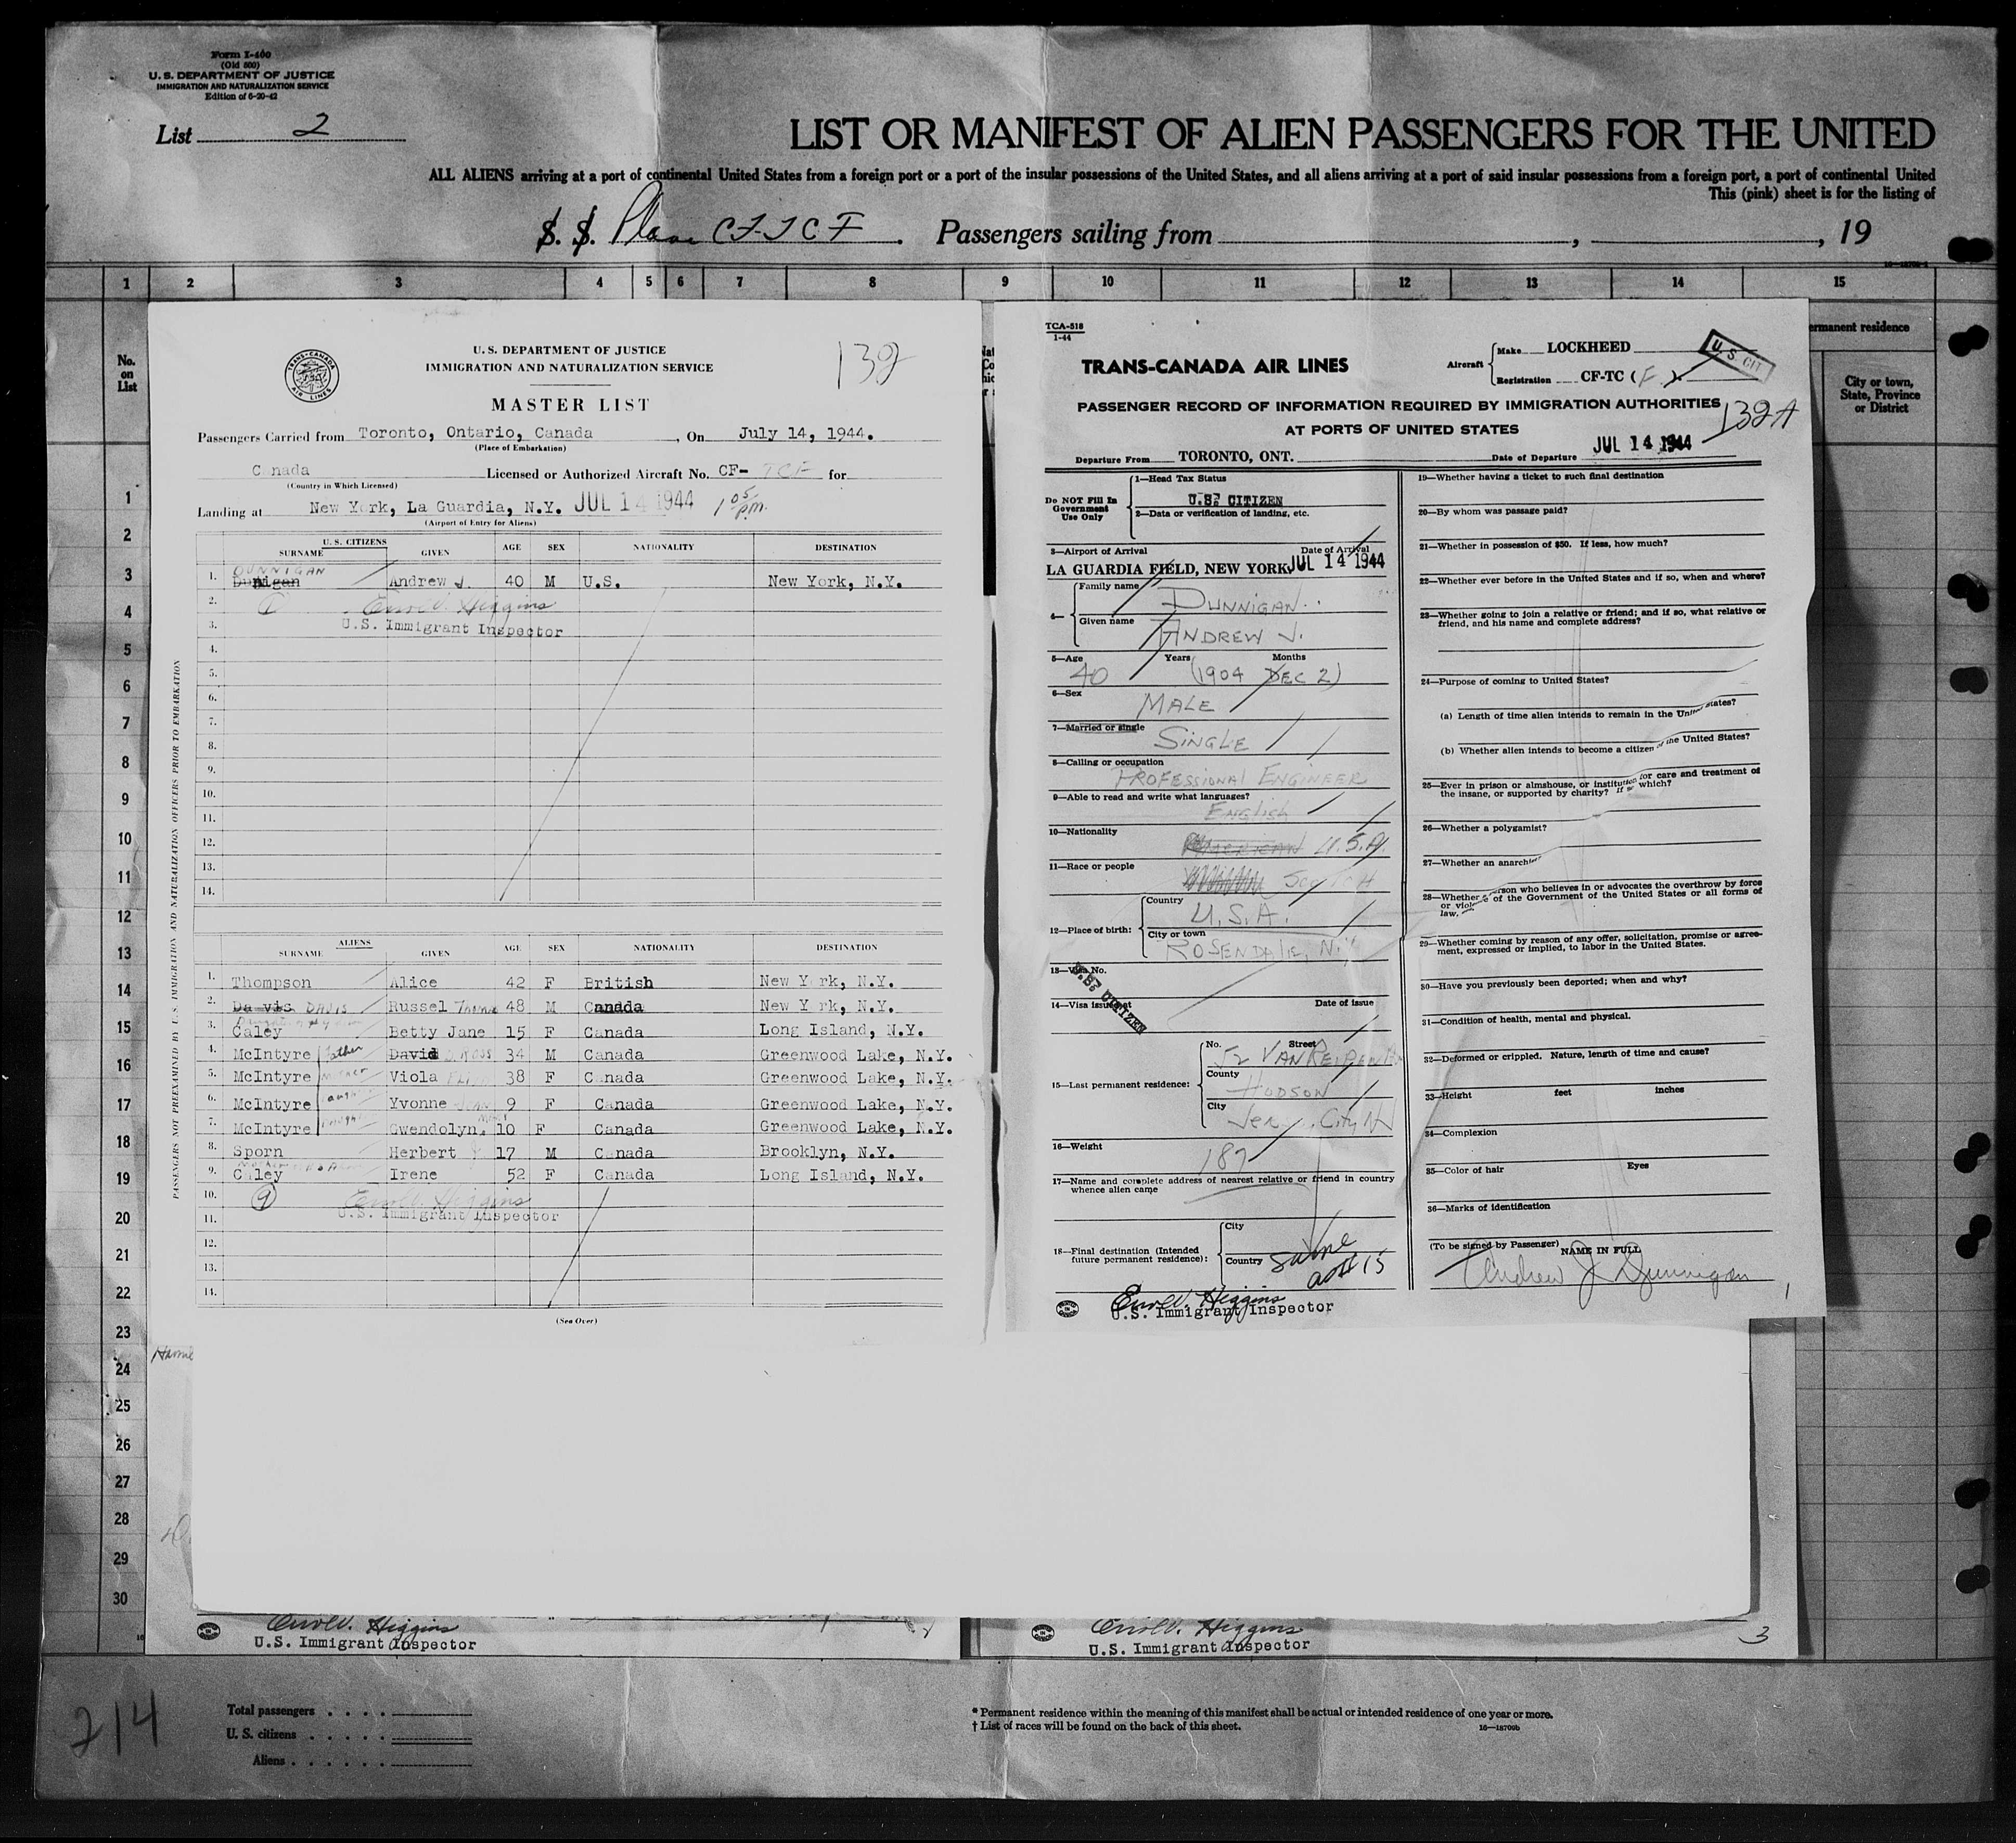 Form I-400
(Old 500)
U. S. DEPARTMENT OF JUSTICE
IMMIGRATION AND NATURALIZATION SERVICE
Edition of 6-20-42
List 2
LIST OR MANIFEST OF ALIEN PASSENGERS FOR THE UNITED
ALL ALIENS arriving at a port of continental United States from a foreign port or a port of the insular possessions of the United States, and all aliens arriving at a port of said insular possessions from a foreign port, a port of continental United
This (pink) sheet is for the listing of
S. S. Plane CF-TCF. Passengers sailing from , , 19
1 2 3 4 5 6 7 8 9 10 11 12 13 14 15
No.
on
List
ermanent residence
City or town,
State, Province
or District
1
2
3
4
5
6
7
8
9
10
11
12
13
14
15
16
17
18
19
20
21
22
23
24
25
26
27
28
29
30
TRANS-CANADA AIR LINES
U. S. DEPARTMENT OF JUSTICE
IMMIGRATION AND NATURALIZATION SERVICE
132
MASTER LIST
Passengers Carried from Toronto, Ontario, Canada, On July 14, 1944.
(Place of Embarkation)
C nada Licensed or Authorized Aircraft No. CF- TCF for
(Country in Which Licensed)
Landing at New Y rk, La Guardia, N.Y. JUL 14 1944 1 05 P.M.
(Airport of Entry for Aliens)
PASSENGERS NOT PREEXAMINED BY U. S. IMMIGRATION AND NATURALIZATION OFFICERS PRIOR TO EMBARKATION
U. S. CITIZENS
SURNAME GIVEN AGE SEX NATIONALITY DESTINATION
DUNNIGAN
1. Dunnigan Andrew J. 40 M U.S. New York, N.Y.
2. 1 Errol V. Higgins
3. U.S. Immigrant Inspector
4.
5.
6.
7.
8.
9.
10.
11.
12.
13.
14.
ALIENS
SURNAME GIVEN AGE SEX NATIONALITY DESTINATION
1. Thompson Alice 42 F British New Y rk, N.Y.
2. Da vis DAVIS Russel Thomas 48 M Canada New Y rk, N.Y.
3. Caley Betty Jane 15 F Canada Long Island, N.Y.
4. McIntyre father David 34 M Canada Greenwood Lake, N.Y.
5. McIntyre mother Viola 38 F C nada Greenwood Lake, N.Y.
6. McIntyre Yvonne 9 F Canada Greenwood Lake, N.Y.
7. McIntyre Gwendolyn. 10 F Canada Greenwood Lake, N.Y.
8. Sporn Herbert 17 M C nada Brooklyn, N.Y.
9. C ley Irene 52 F Canada Long Island, N.Y.
10. 9 Errol V. Higgins
11. U.S. Immigrant Inspector
12.
13.
14.
(See Over)
TCA-518
1-44
TRANS-CANADA AIR LINES
Aircraft Make LOCKHEED
Registration CF-TC (F)
U. S. CIT.
PASSENGER RECORD OF INFORMATION REQUIRED BY IMMIGRATION AUTHORITIES
AT PORTS OF UNITED STATES
132A
Departure From TORONTO, ONT. Date of Departure JUL 14 1944
Do NOT Fill In
Government
Use Only
1—Head Tax Status
U.S. CITIZEN
2—Data or verification of landing, etc.
3—Airport of Arrival Date of Arrival
LA GUARDIA FIELD, NEW YORK JUL 14 1944
4— Family name DUNNIGAN
Given name ANDREW J.
5—Age 40 Years (1904 DEC 2) Months
6—Sex MALE
7—Married or single SINGLE
8—Calling or occupation
PROFESSIONAL ENGINEER
9—Able to read and write what languages?
ENGLISH
10—Nationality AMERICAN U.S.A.
11—Race or people SCOTCH
12—Place of birth: Country U.S.A.
City or town ROSENDALE, N.Y.
13—Visa No.
U.S. CITIZEN
14—Visa issued at Date of issue
15—Last permanent residence: No. Street 52 VAN REIPEN
County HUDSON
City Jer City NJ
16—Weight 187
17—Name and complete address of nearest relative or friend in country
whence alien came
18—Final destination (Intended
future permanent residence): City
Country same
as # 15
Errol V. Higgins
U.S. Immigrant Inspector
19—Whether having a ticket to such final destination
20—By whom was passage paid?
21—Whether in possession of $50. If less, how much?
22—Whether ever before in the United States and if so, when and where?
23—Whether going to join a relative or friend; and if so, what relative or
friend, and his name and complete address?
24—Purpose of coming to United States?
(a) Length of time alien intends to remain in the United States?
(b) Whether alien intends to become a citizen of the United States?
25—Ever in prison or almshouse, or institution for care and treatment of
the insane, or supported by charity? If so which?
26—Whether a polygamist?
27—Whether an anarchist
28—Whether person who believes in or advocates the overthrow by force
or violence of the Government of the United States or all forms of
law.
29—Whether coming by reason of any offer, solicitation, promise or agree-
ment, expressed or implied, to labor in the United States.
30—Have you previously been deported; when and why?
31—Condition of health, mental and physical.
32—Deformed or crippled. Nature, length of time and cause?
33—Height feet inches
34—Complexion
35—Color of hair Eyes
36—Marks of identification
(To be signed by Passenger) NAME IN FULL
Andrew J Dunnigan
1
Errol V. Higgins
U.S. Immigrant Inspector
Errol V. Higgins
U.S. Immigrant Inspector
3
214
Total passengers
U. S. citizens
Aliens
* Permanent residence within the meaning of this manifest shall be actual or intended residence of one year or more.
† List of races will be found on the back of this sheet.
16—18709b